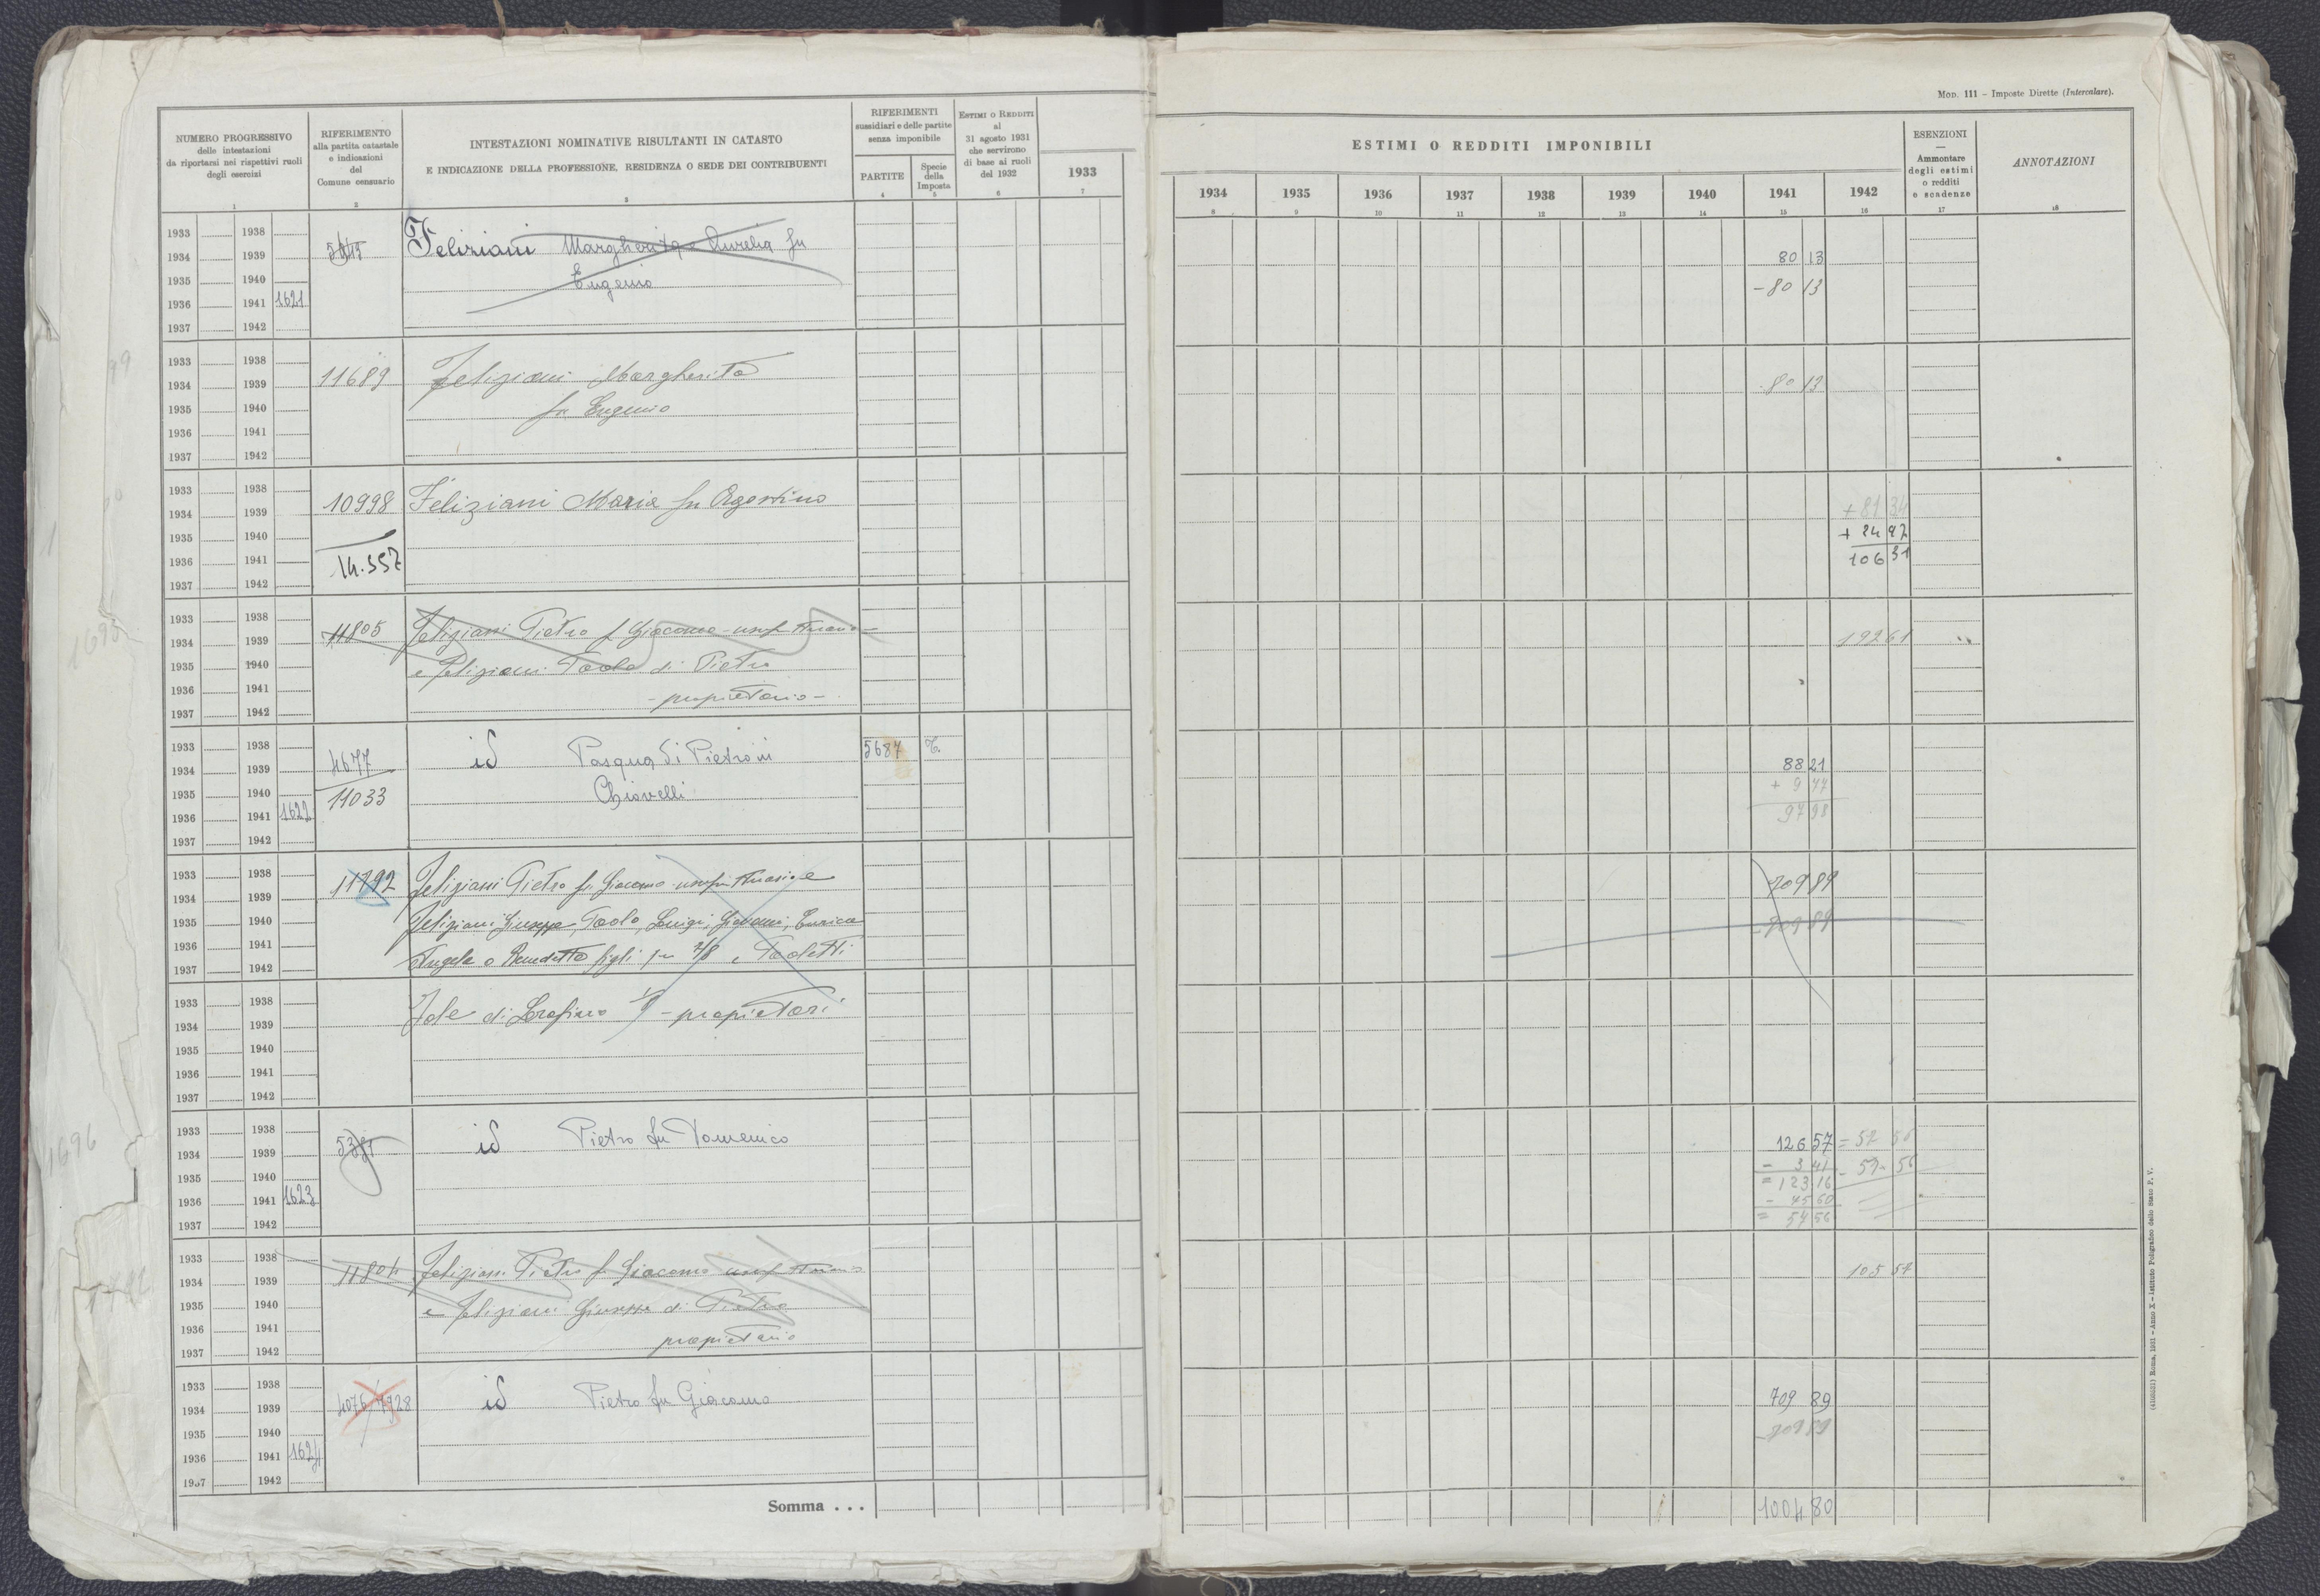 Mod. 111 - Imposte Dirette (Intercalare).
NUMERO PROGRESSIVO
delle intestazioni
da riportarsi nei rispettivi ruoli
degli esercizi
1
RIFERIMENTO
alla partita catastale
e indicazioni
del
Comune censuario
2
INTESTAZIONI NOMINATIVE RISULTANTI IN CATASTO
E INDICAZIONE DELLA PROFESSIONE, RESIDENZA O SEDE DEI CONTRIBUENTI
3
RIFERIMENTI
sussidiari e delle partite
senza imponibile
PARTITE
4
Specie
della
Imposta
5
Estimi o Redditi
al
31 agosto 1931
che servirono
di base ai ruoli
del 1932
6
1933
7
ESTIMI O REDDITI IMPONIBILI
1934 1935 1936 1937 1938 1939 1940 1941 1942
8 9 10 11 12 13 14 15 16
ESENZIONI
Ammontare
degli estimi
o redditi
e scadenze
17
ANNOTAZIONI
18
1933 1938
1934 1939
1935 1940
1936 1941 1621
1937 1942
Feliziani Margherita e Aurelia fu
Eugenio
80 13
- 80 13
1933 1938
1934 1939
1935 1940
1936 1941
1937 1942
11689
Feliziani Margherita
fu Eugenio
80 13
1933 1938
1934 1939
1935 1940
1936 1941
1937 1942
10998
14.557
Feliziani Maria fu Agostino
+ 81 34
+ 24 97
106 31
1933 1938
1934 1939
1935 1940
1936 1941
1937 1942
11805
Feliziani Pietro f Giacomo - usufruttuario -
e Feliziani Paolo di Pietro
- proprietario -
192 61
1933 1938
1934 1939
1935 1940
1936 1941 1622
1937 1942
4677
11033
id Pasqua di Pietro in
Chiovelli
5687 T.
88 21
+ 9 77
97 98
1933 1938
1934 1939
1935 1940
1936 1941
1937 1942
11792
Feliziani Pietro fu Giacomo usufruttuario e
Feliziani Giuseppe, Paolo, Luigi, Giovanni, Enrica
Angela e Benedetto figli per 7/8 e Paoletti
709 89
- 709 89
1933 1938
1934 1939
1935 1940
1936 1941
1937 1942
Iole di Serafino 1/8 - proprietari
1933 1938
1934 1939
1935 1940
1936 1941 1623
1937 1942
id Pietro fu Domenico
126 57
- 3 41
= 123 16
- 45 60
1933 1938
1934 1939
1935 1940
1936 1941
1937 1942
11804
Feliziani Pietro fu Giacomo usufruttuario
e Feliziani Giuseppe di Pietro
proprietario
105 57
1933 1938
1934 1939
1935 1940
1936 1941 1624
1937 1942
id Pietro fu Giacomo
709 89
- 709 89
Somma . . .
1004 80
1696
(4160531) Roma, 1931 - Anno X - Istituto Poligrafico dello Stato P. V.